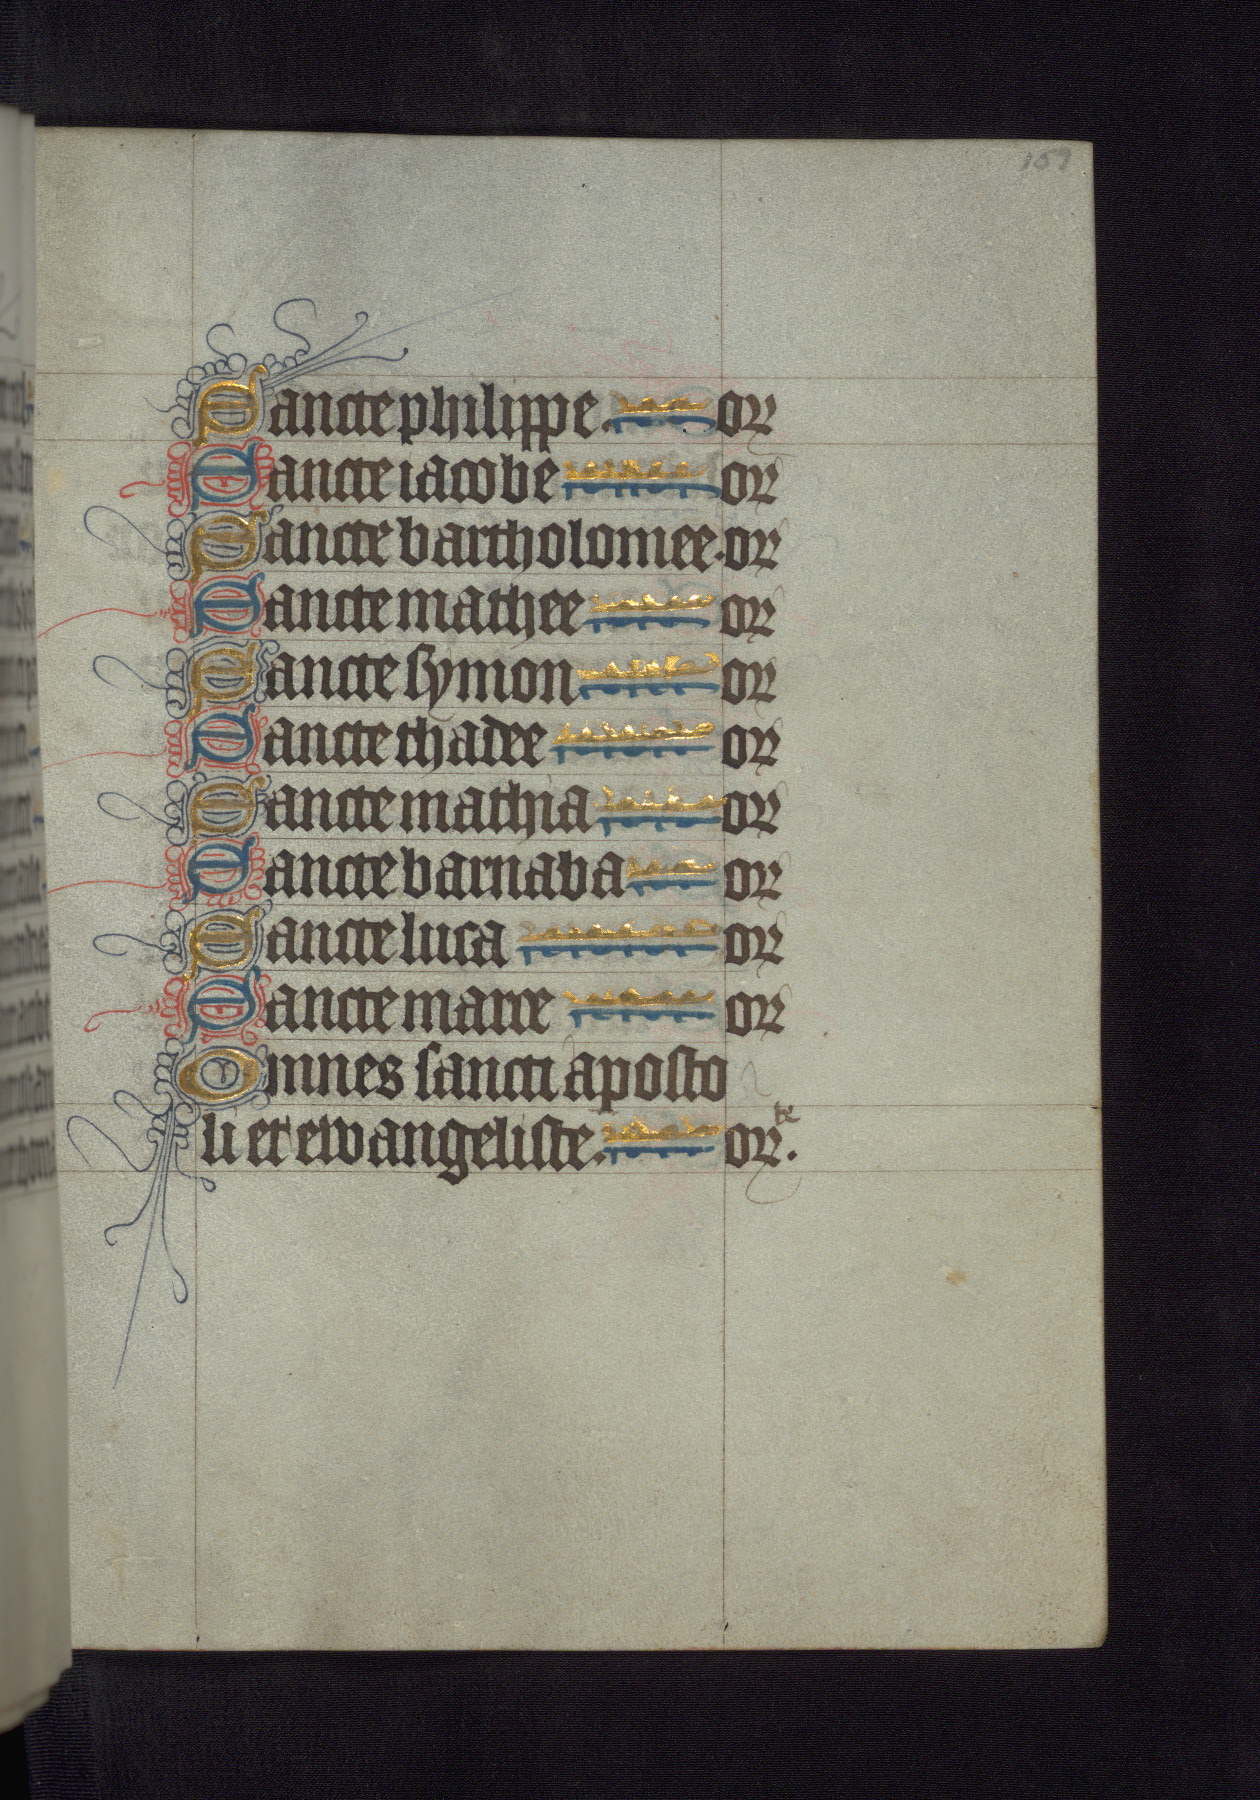 Sancte philippe. or
Sancte iacobe or
Sancte bartholomee. or
Sancte mathee or
Sancte symon or
Sancte thadee or
Sancte mathia or
Sancte barnaba or
Sancte luca or
Sancte marce or
Omnes sancti aposto
li et ewangeliste. orte.